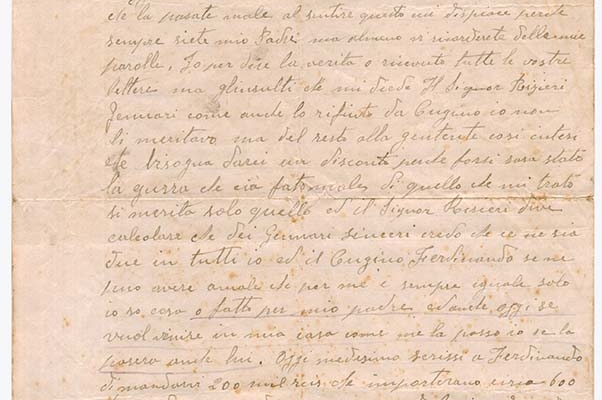 che la pasate male al sentire questo mi dispiace perche
sempre siete mio Padre ma almeno vi ricorderete delle mie
parolle. Io per dire la verita o ricevuto tutte le vostre
lettere ma gl'insulti che mi diede Il Signor Rizieri
Gennari come anche lo rifiuto da Cugino io non
li meritavo ma del resto alla gente cosi
che bisogna darci un disconto perche forsi sara stato
la guerra che cia fato male, di quello che mi trato
si merita solo quello ed il Signor Risieri deve
calcolare che dei Gennari sinceri credo che ce ne sia
due in tutti io ed il Cugino Ferdinando se ne
puo avere amale che per me è sempre iguale solo
io so cosa o fatto per mio padre ed anche oggi se
vuol venire in mia casa come me la passo io se la
pasera anche lui. Oggi medesimo scrissi a Ferdinando
di mandarvi 200 mil reis che importerano circa 600